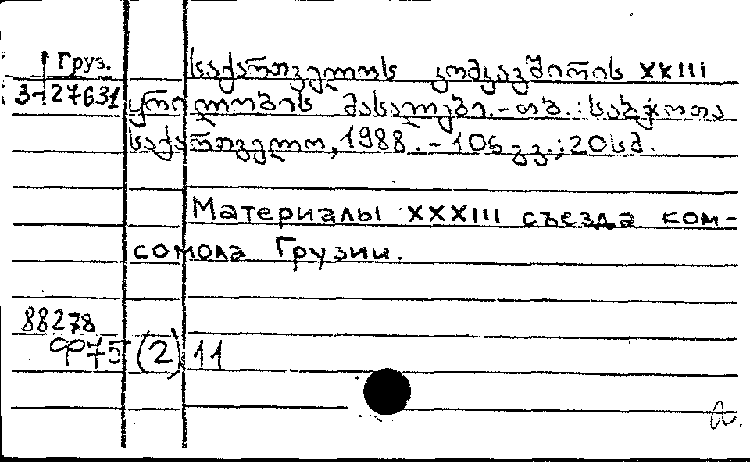 Груз. საქართველოს კომკავშირის XXIII
3-27631 ყრილობის მასალები. - თბ. : საბჭოთა
საქართველო, 1988. - 106 გვ. ; 20 სმ.
Материалы XXXIII съезда ком-
сомола Грузии.
88278
975 (2) 11